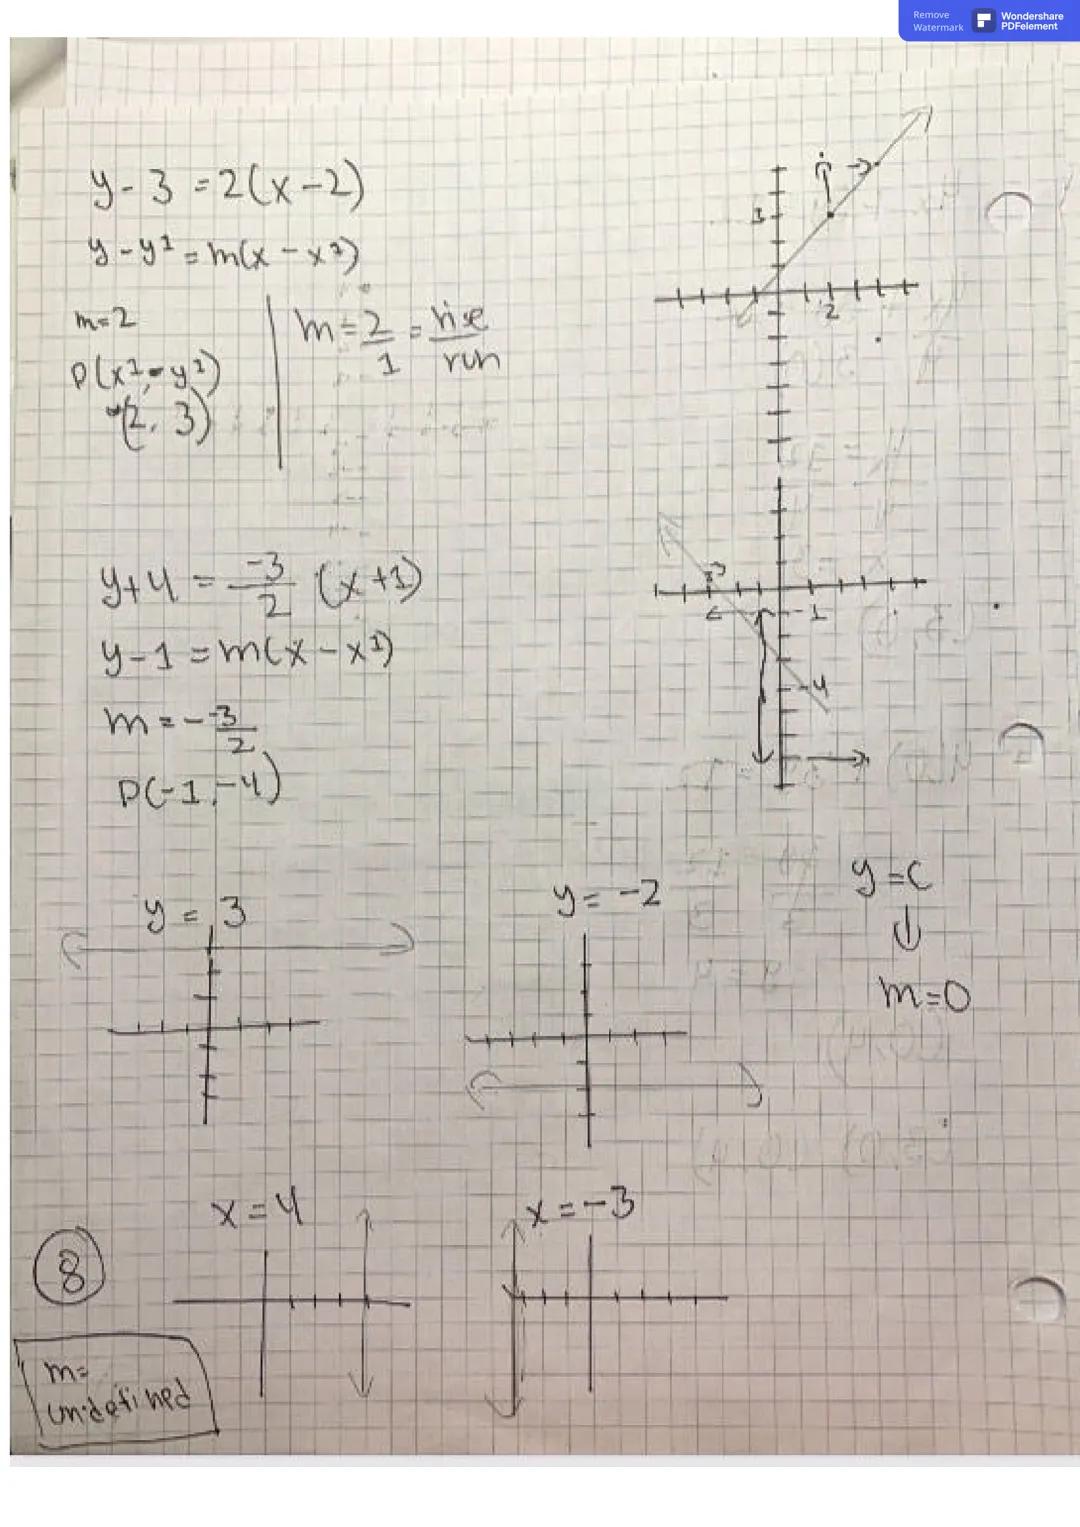 Remove Watermark
Wondershare PDFelement
y - 3 = 2(x - 2)
y - y¹ = m(x - x¹)
m = 2
P(x¹, y¹)
(2, 3)
m = 2/1 = rise/run
3
2
y + 4 = -3/2 (x + 1)
y - 1 = m(x - x¹)
m = - -3/2
P(-1, -4)
-3
-1
-4
y = 3
y = -2
y = c
⇓
m = 0
x = 4
x = -3
8
m =
undefined